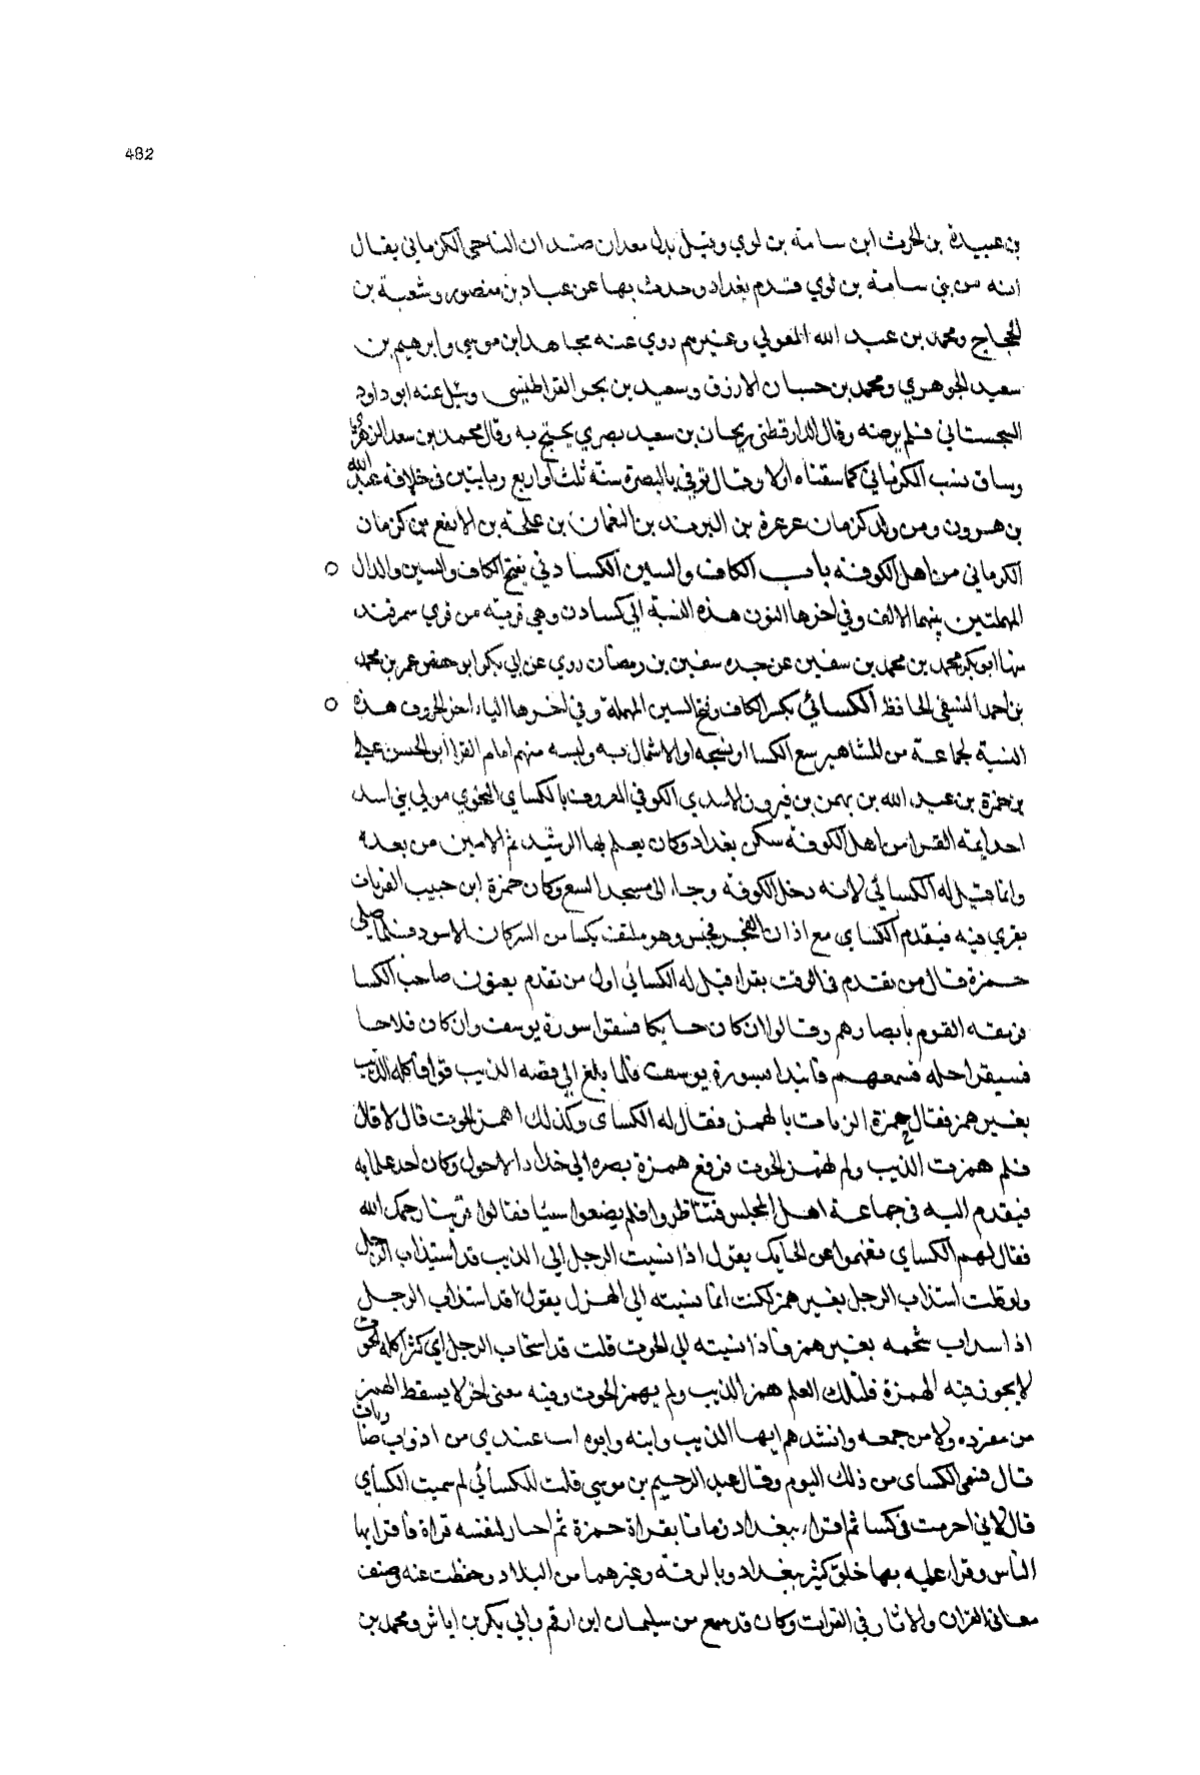 482
بن عبيدة بن الحرث ابن سامة بن لوي وقيل بدل معدان صندان الناجي الكزماني يقال
انه من بني سامة بن لوي قدم بغداد وحدث بها عن عباد بن منصور وشعبة بن
الحجاج ومحمد بن عبد الله العولي وغيرهم روي عنه مجاهد ابن موسي وابرهيم بن
سعيد الجوهري ومحمد بن حسان الازرق وسعيد بن بحر القراطيسي وسئل عنه ابو داود
السجستاني فلم يرضه وقال الدارقطني ريحان بن سعيد بصري يحتج به وقال محمد بن سعد الزهري
وساق نسب الكزماني كما سقناه اولا وقال توفي بالبصرة سنة ثلث او اربع ومايتين في خلافة عبد الله
بن هرون ومن ولد كزمان عرعرة بن البرند بن النعمان بن علجة بن الاقفع بن كزمان
الكزماني من اهل الكوفة باب الكاف والسين الكسادني بفتح الكاف والسين والدال
المهملتين بينهما الالف وفي اخرها النون هذه النسبة الي كسادن وهي قرية من قري سمرقند
منها ابو بكر محمد بن محمد بن سفين عن جده سفين بن رمضان روي عن ابي بكر ابو حفص عمر بن محمد
بن احمد النسفي الحافظ الكسائي بكسر الكاف وفتح السين المهملة وفي اخرها الياء اخر الحروف هذه
النسبة لجماعة من المشاهير ببيع الكسا او نسجه او الاشتمال به ولبسه منهم امام القرا ابو الحسن علي
بن حمزة بن عبد الله بن بهمن بن فيروز الاسدي الكوفي المعروف بالكساي النحوي مولي بني اسد
احد ايمة القرا من اهل الكوفة سكن بغداد وكان يعلم بها الرشيد ثم الامين من بعده
وانما قيل له الكسائي لانه دخل الكوفة وجاء الى مسجد السبيع وكان حمزة ابن حبيب الزيات
يقري فيه فيقدم الكساي مع اذان الفجر فجلس وهو ملتف بكسا من البركان الاسود فلما صلي
حمزة قال من تقدم في الوقت يقرا قيل له الكسائي اول من تقدم يعنون صاحب الكسا
فرمقه القوم بابصارهم وقالوا ان كان حايكا فسيقرا سورة يوسف وان كان فلاحا
فسيقرا طه فسمعهم فابتدا بسورة يوسف فلما بلغ الي قصه الذيب قرا فاكله الذيب
بغير همز فقال حمزة الزيات بالهمز فقال له الكساى وكذلك اهمز الحوت قال لا قال
فلم همزت الذيب ولم تهمز الحوت فرفع حمزة بصره الي خلاد الاحول وكان احد غلمانه
فيقدم اليه في جماعة اهل المجلس فتناظروا فلم يصنعوا سيا فقالوا رحمك الله
فقال لهم الكساي تفهموا عن الحايك يقول اذا نسبت الرجل الي الذيب قد استذاب الرجل
ولو قلت استذاب الرجل بغير همز لكنت انما نسبته الي الهزل يقول قد استذاب الرجل
اذا استذاب شحمه بغير همز فاذا نسبته الي الحوت قلت قد استحات الرجل اي كثر اكله الحوت
لا يجوز فيه الهمزة فلتلك العلم همز الذيب ولم يهمز الحوت وفيه معنى اخر لا يسقط الهمز
من مفرده ولا من جمعه وانشدهم ايها الذيب وابنه وابوه انت عندي من اذوب ضاريات
قال فسمى الكساى من ذلك اليوم وقال عبد الرحيم بن موسي قلت للكسائي لم سميت الكساي
قال لاني احرمت في كسا ثم اقرا ببغداد زمانا بقراة حمزة ثم اختار لنفسه قراة فاقرا بها
الناس وقراء عليه بها خلق كثير ببغداد وبالرقة وغيرهما من البلاد وحفظت عنه وصنف
معاني القران والاثار في القرات وكان قد سمع من سليمان ابن ارقم وابي بكر بن اياش ومحمد بن